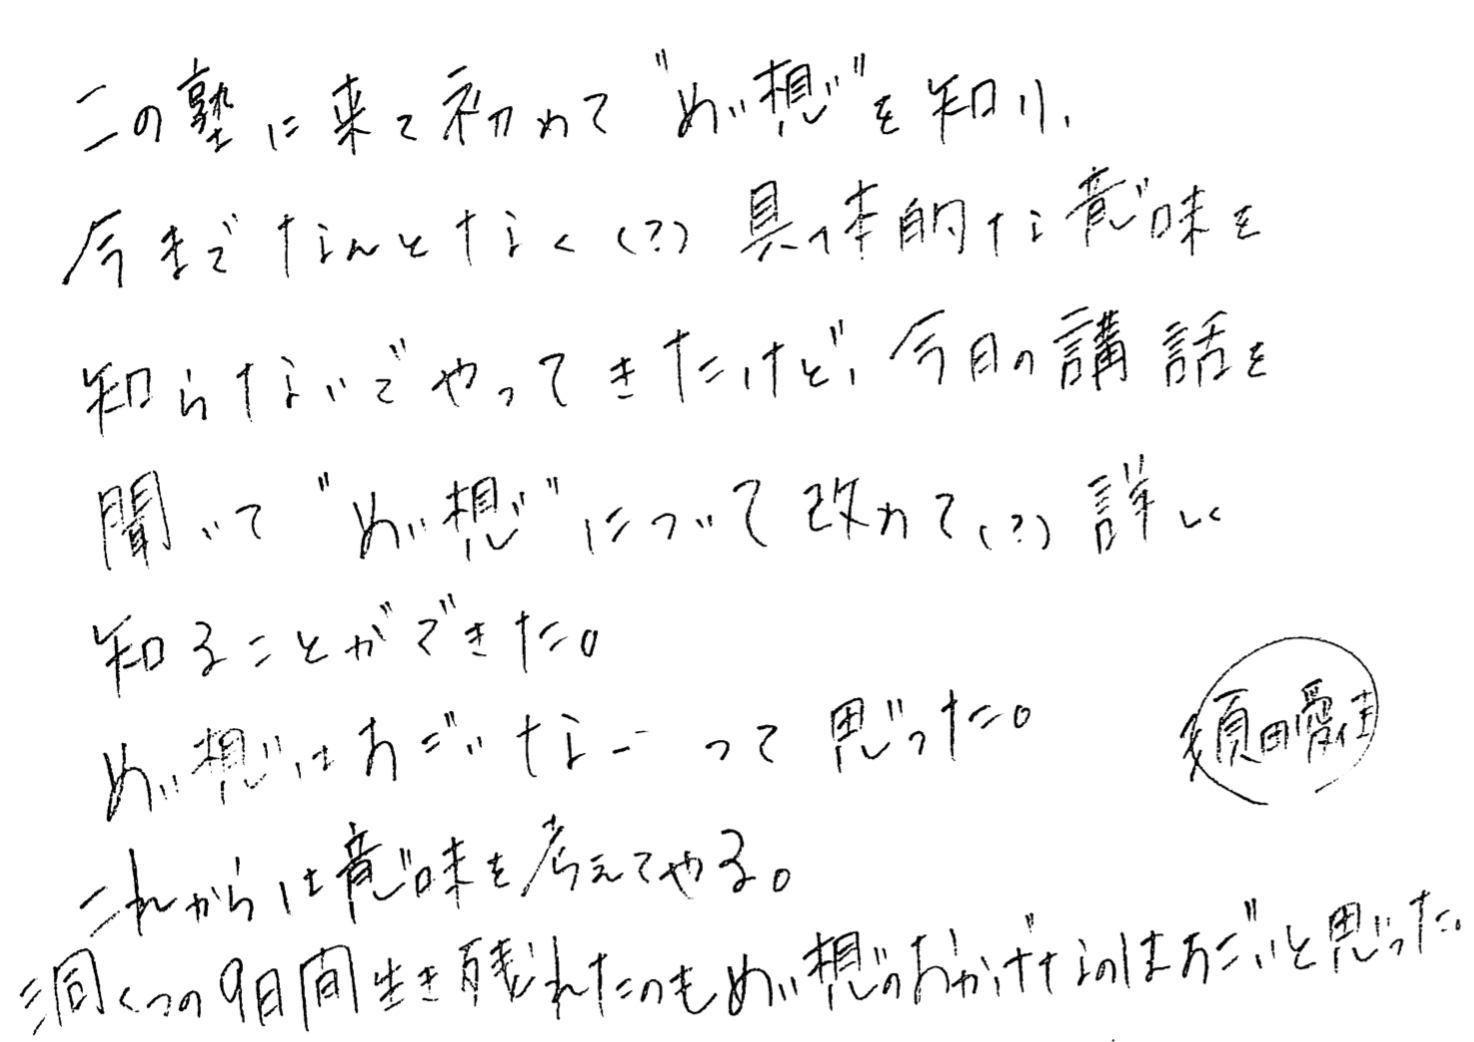 この塾に来て初めて"めい想"を知り、
今までなんとなく(?)具体的な意味を
知らないでやってきたけど、今日の講話を
聞いて"めい想"について改めて(?)詳しく
知ることができた。
めい想はすごいな…って思った。
須田愛佳
これからは意味を考えてやる。
洞くつの9日間生き残れたのもめい想のおかげなのはすごいと思った。